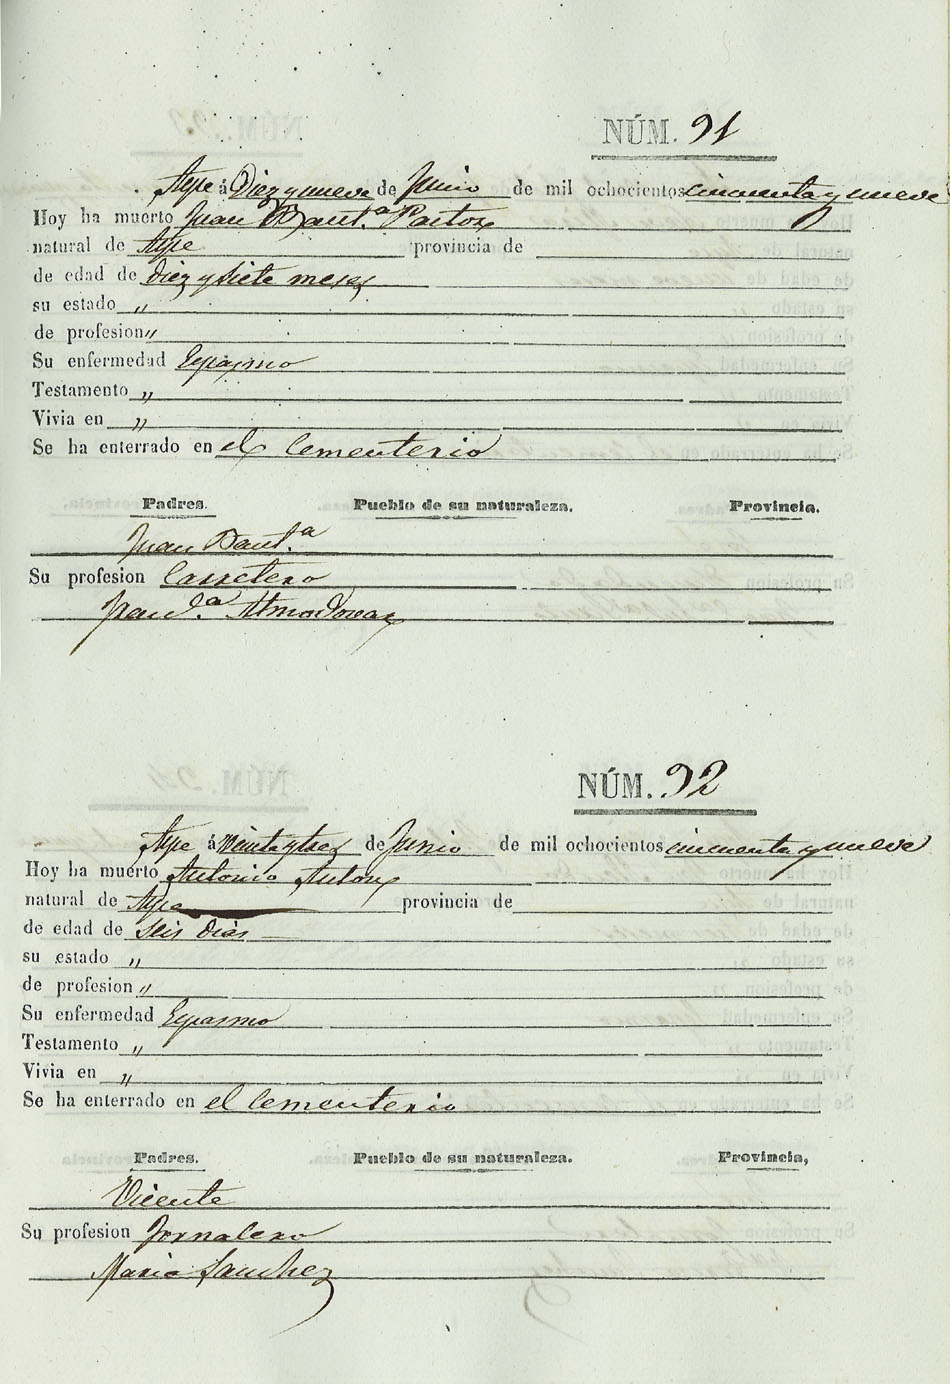 NÚM. 91
Aspe á Diez y nueve de Junio de mil ochocientos cincuenta y nueve
Hoy ha muerto Juan Baut.ª Pastor
natural de Aspe provincia de
de edad de diez y siete meses
su estado „
de profesion „
Su enfermedad Espasmo
Testamento „
Vivia en „
Se ha enterrado en el Cementerio
Padres. Pueblo de su naturaleza. Provincia.
Juan Baut.ª
Su profesion Carretero
Fran.ca Almodovar
NÚM. 92
Aspe á Veinte y tres de Junio de mil ochocientos cincuenta y nueve
Hoy ha muerto Antonio Anton
natural de Aspe provincia de
de edad de seis dias
su estado „
de profesion „
Su enfermedad Espasmo
Testamento „
Vivia en „
Se ha enterrado en el Cementerio
Padres. Pueblo de su naturaleza. Provincia,
Vicente
Su profesion Jornalero
Maria Sanchez